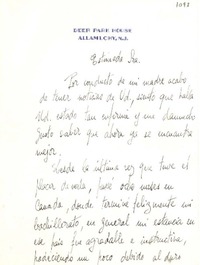 1093
DEER PARK HOUSE
ALLAMUCHY, N.J.
Estimada Sra.
Por conducto de mi madre acabo
de tener noticias de Ud, siento que haya
Ud. estado tan enferma y me da mucho
gusto saber que ahora ya se encuentra
mejor.
Desde la última vez que tuve el
placer de verla, hace ocho meses en
Canada, donde terminé felizmente mi
bachillerato, en general mi estancia en
ese país fue agradable e instructiva,
padeciendo un poco debido al duro